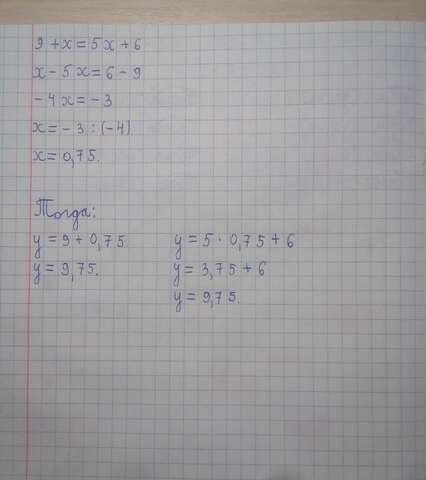 9 + x = 5x + 6
x - 5x = 6 - 9
- 4x = - 3
x = - 3 : (-4)
x = 0,75.
Тогда:
y = 9 + 0,75
y = 9,75.
y = 5 · 0,75 + 6
y = 3,75 + 6
y = 9,75.